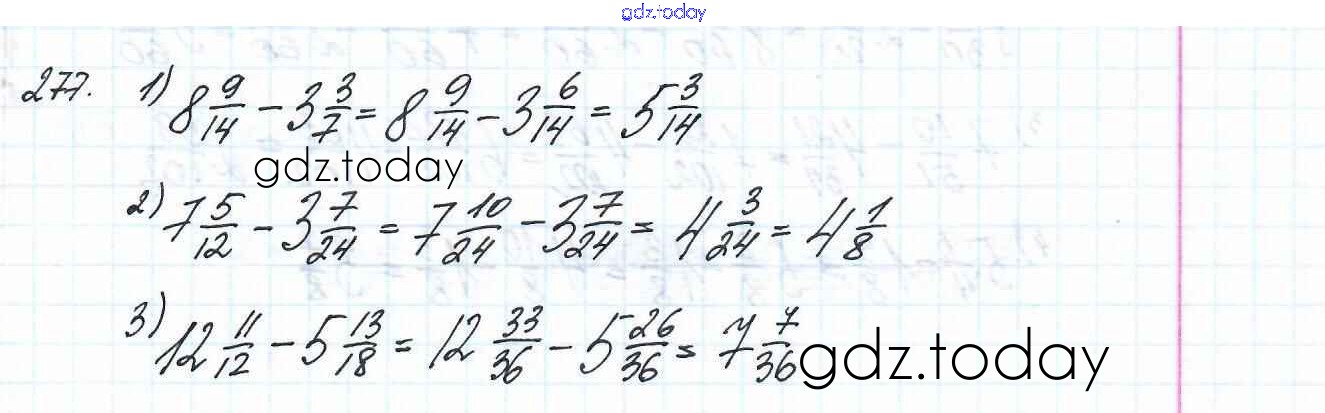 gdz.today
277. 1) 8 9/14 - 3 3/7 = 8 9/14 - 3 6/14 = 5 3/14
gdz.today
2) 7 5/12 - 3 7/24 = 7 10/24 - 3 7/24 = 4 3/24 = 4 1/8
3) 12 11/12 - 5 13/18 = 12 33/36 - 5 26/36 = 7 7/36
gdz.today